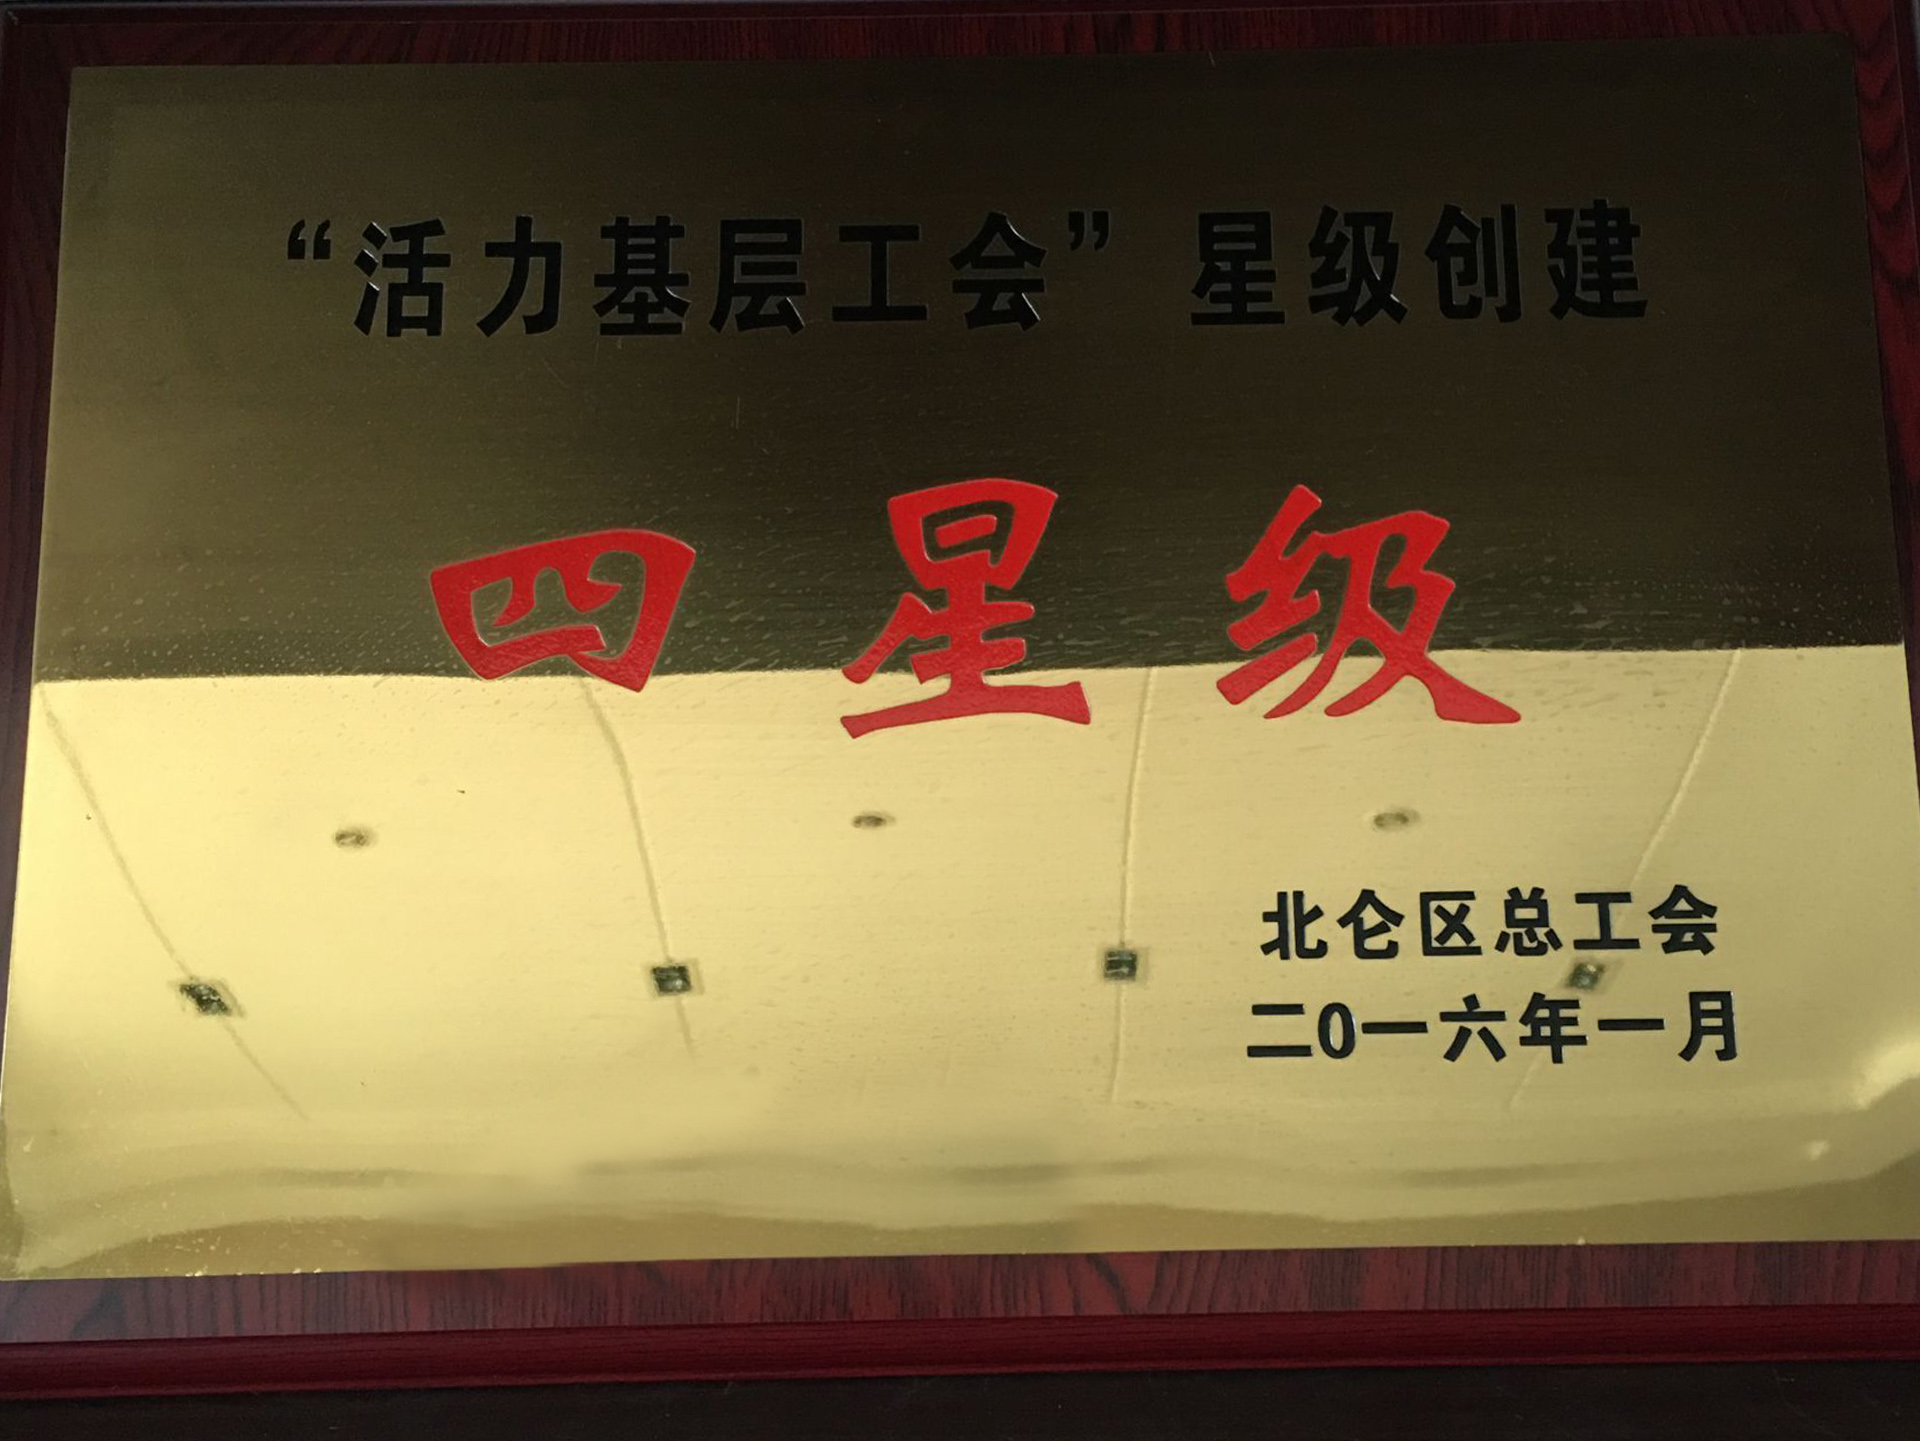 “活力基层工会”星级创建
四星级
北仑区总工会
二0一六年一月